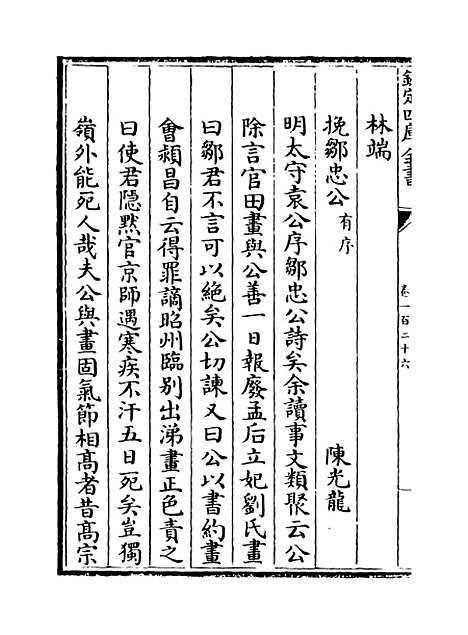 欽定四庫全書
卷一百二十六
林端
挽鄒忠公有序 陳光龍
明太守袁公序鄒忠公詩矣余讀事文類聚云公
除言官田畫與公善一日報廢孟后立妃劉氏畫
曰鄒君不言可以絶矣公切諫又曰公以書約畫
會潁昌自云得罪謫昭州臨别出涕畫正色責之
曰使君隱黙官京師遇寒疾不汗五日死矣豈獨
嶺外能死人哉夫公與畫固氣節相髙者昔髙宗